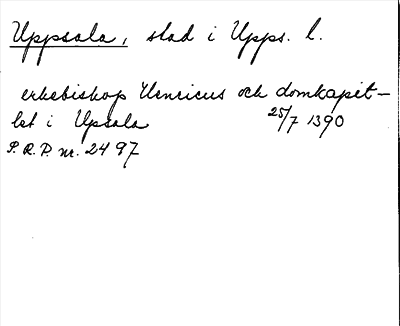 Uppsala, stad i Upps. l.
erkebiskop Henricus och domkapit-
let i Upsala 25/7 1390
P.R.P. nr. 2497